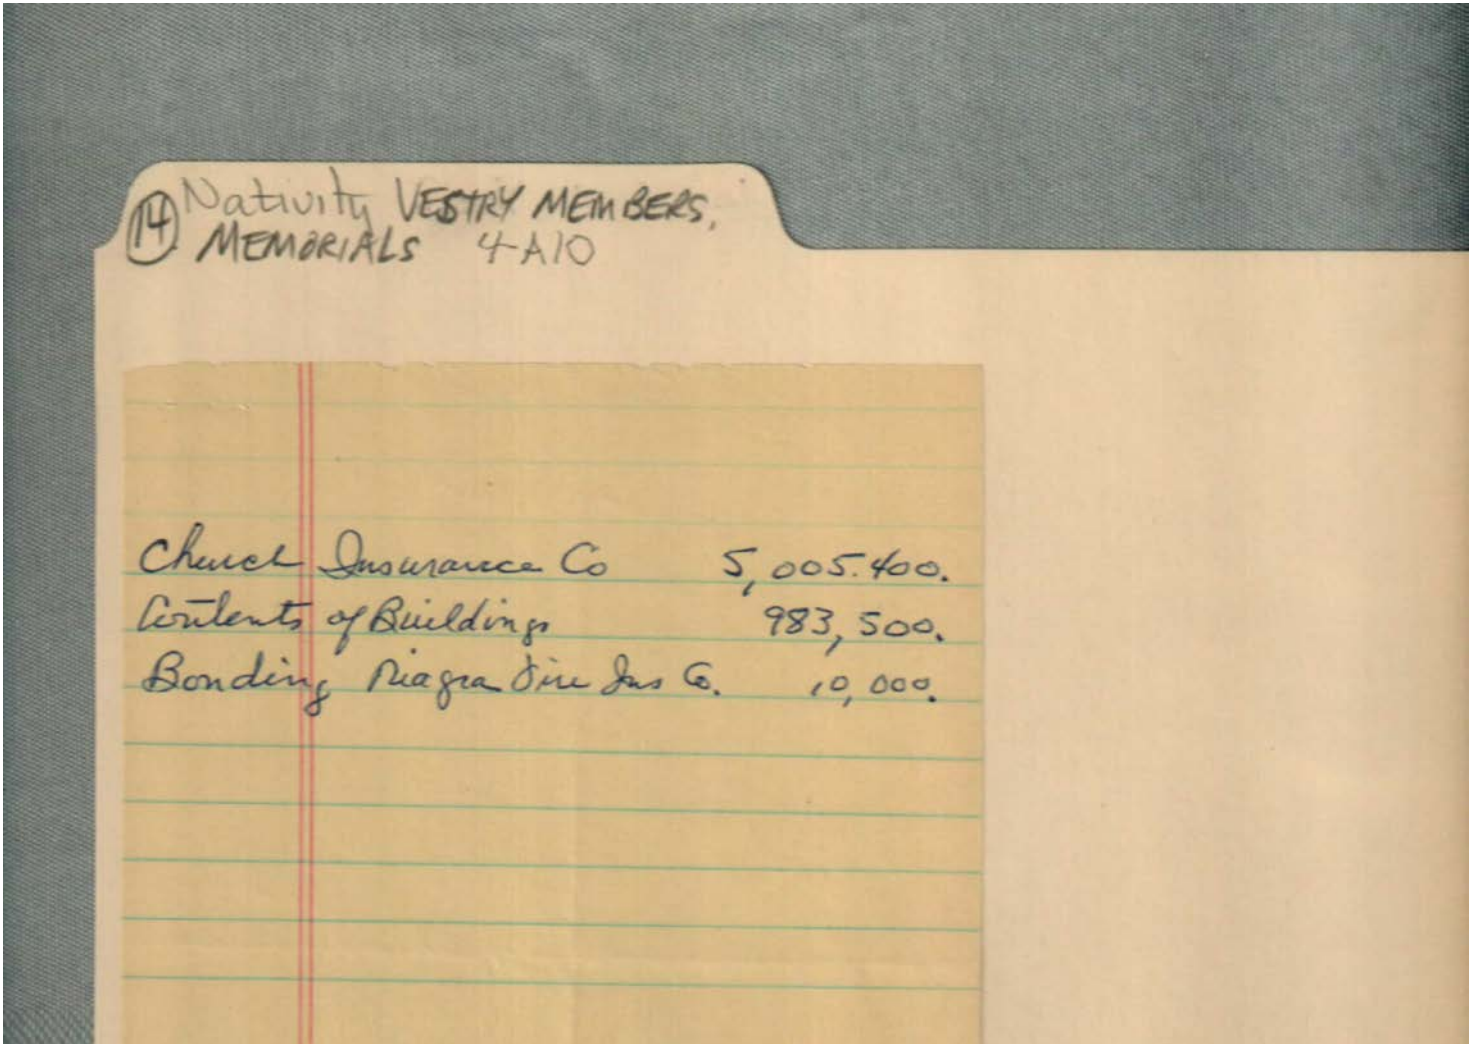 14 Nativity VESTRY MEMBERS,
MEMORIALS 4-A10
Church Insurance Co 5,005.400.
Contents of Buildings 983,500.
Bonding Niagra Fire Ins Co. 10,000.